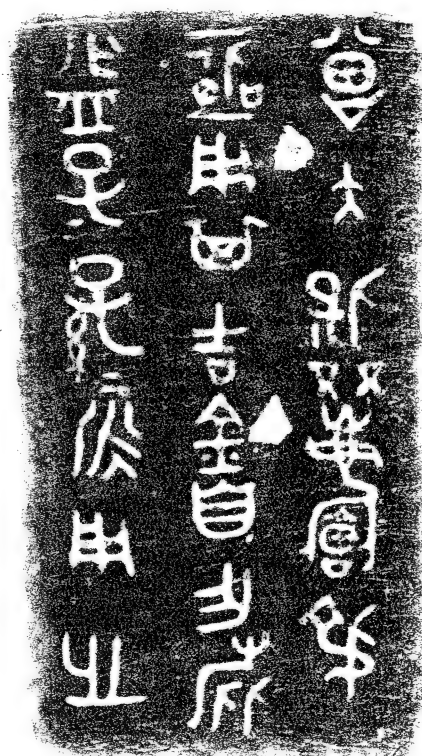 曾大保叔
亟用其吉金自乍旅
盆子孫永用之